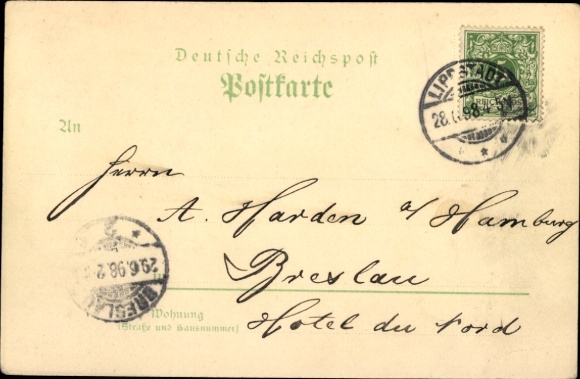 Deutsche Reichspost
Postkarte
LIPPSTADT
28.6.98
REICHS
An
Herrn
A. Harden a/ Hamburg
Breslau
29.6.98.
BRESLAU
Wohnung
(Straße und Hausnummer)
Hotel du Nord